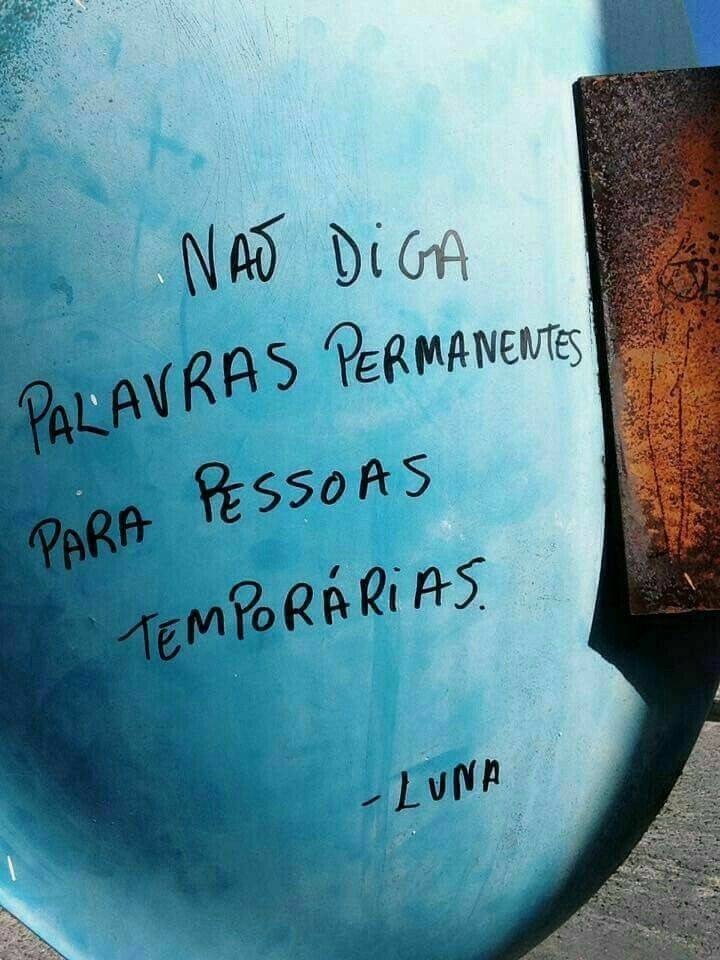 NÃO DIGA
PALAVRAS PERMANENTES
PARA PESSOAS
TEMPORÁRIAS.
- LUNA